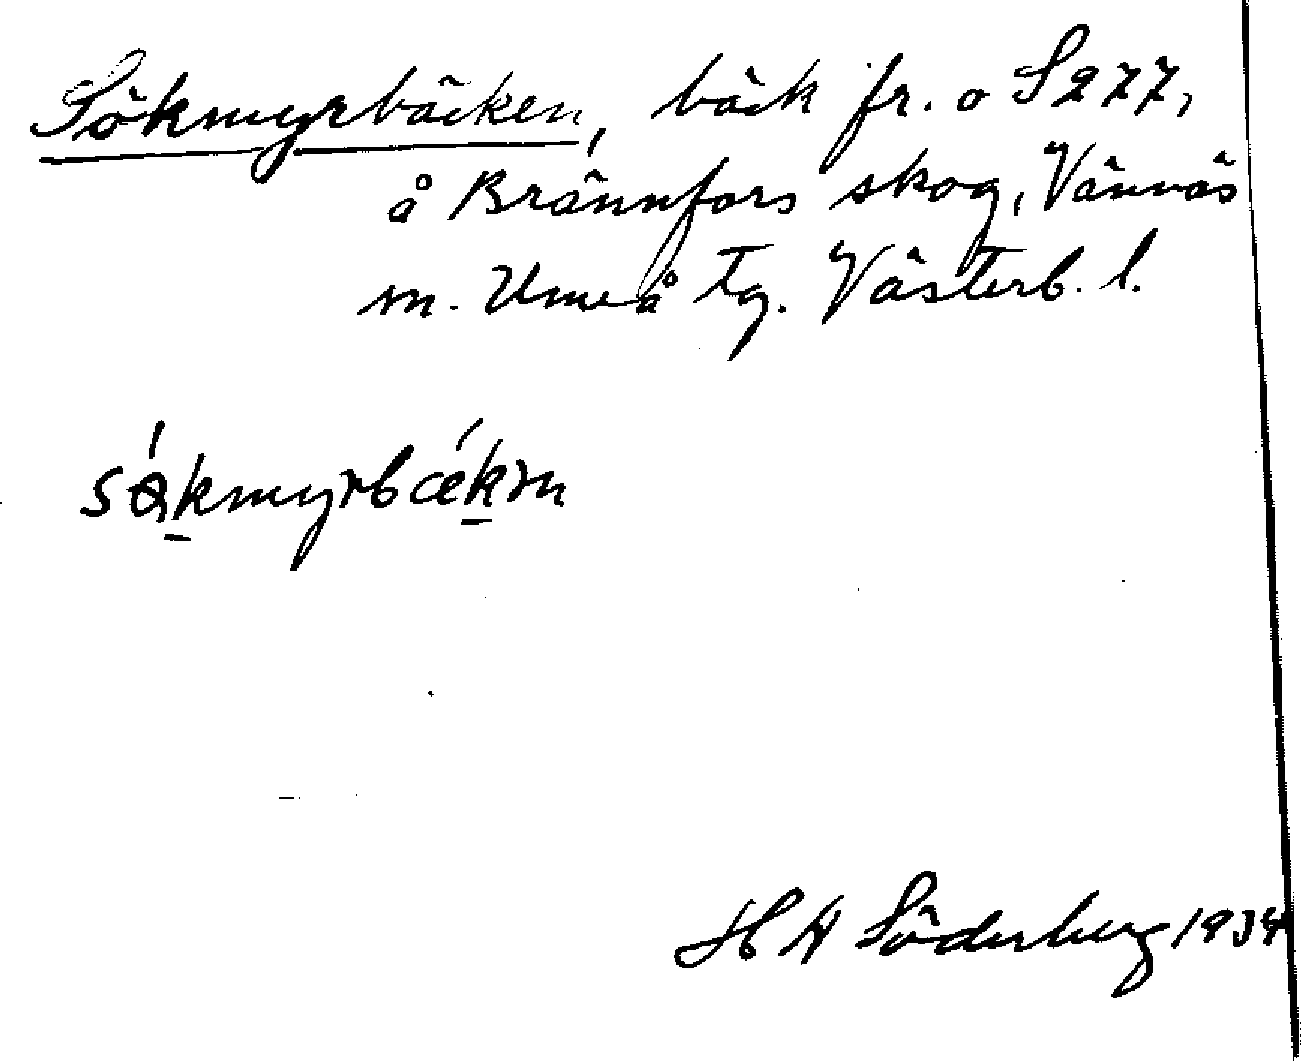 Sökmyrbäcken, bäck fr. o S 277,
å Brännfors skog, Vännäs
m. Umeå tg. Västerb. l.
sǿkmyrbǽkm
H W Söderberg 1934